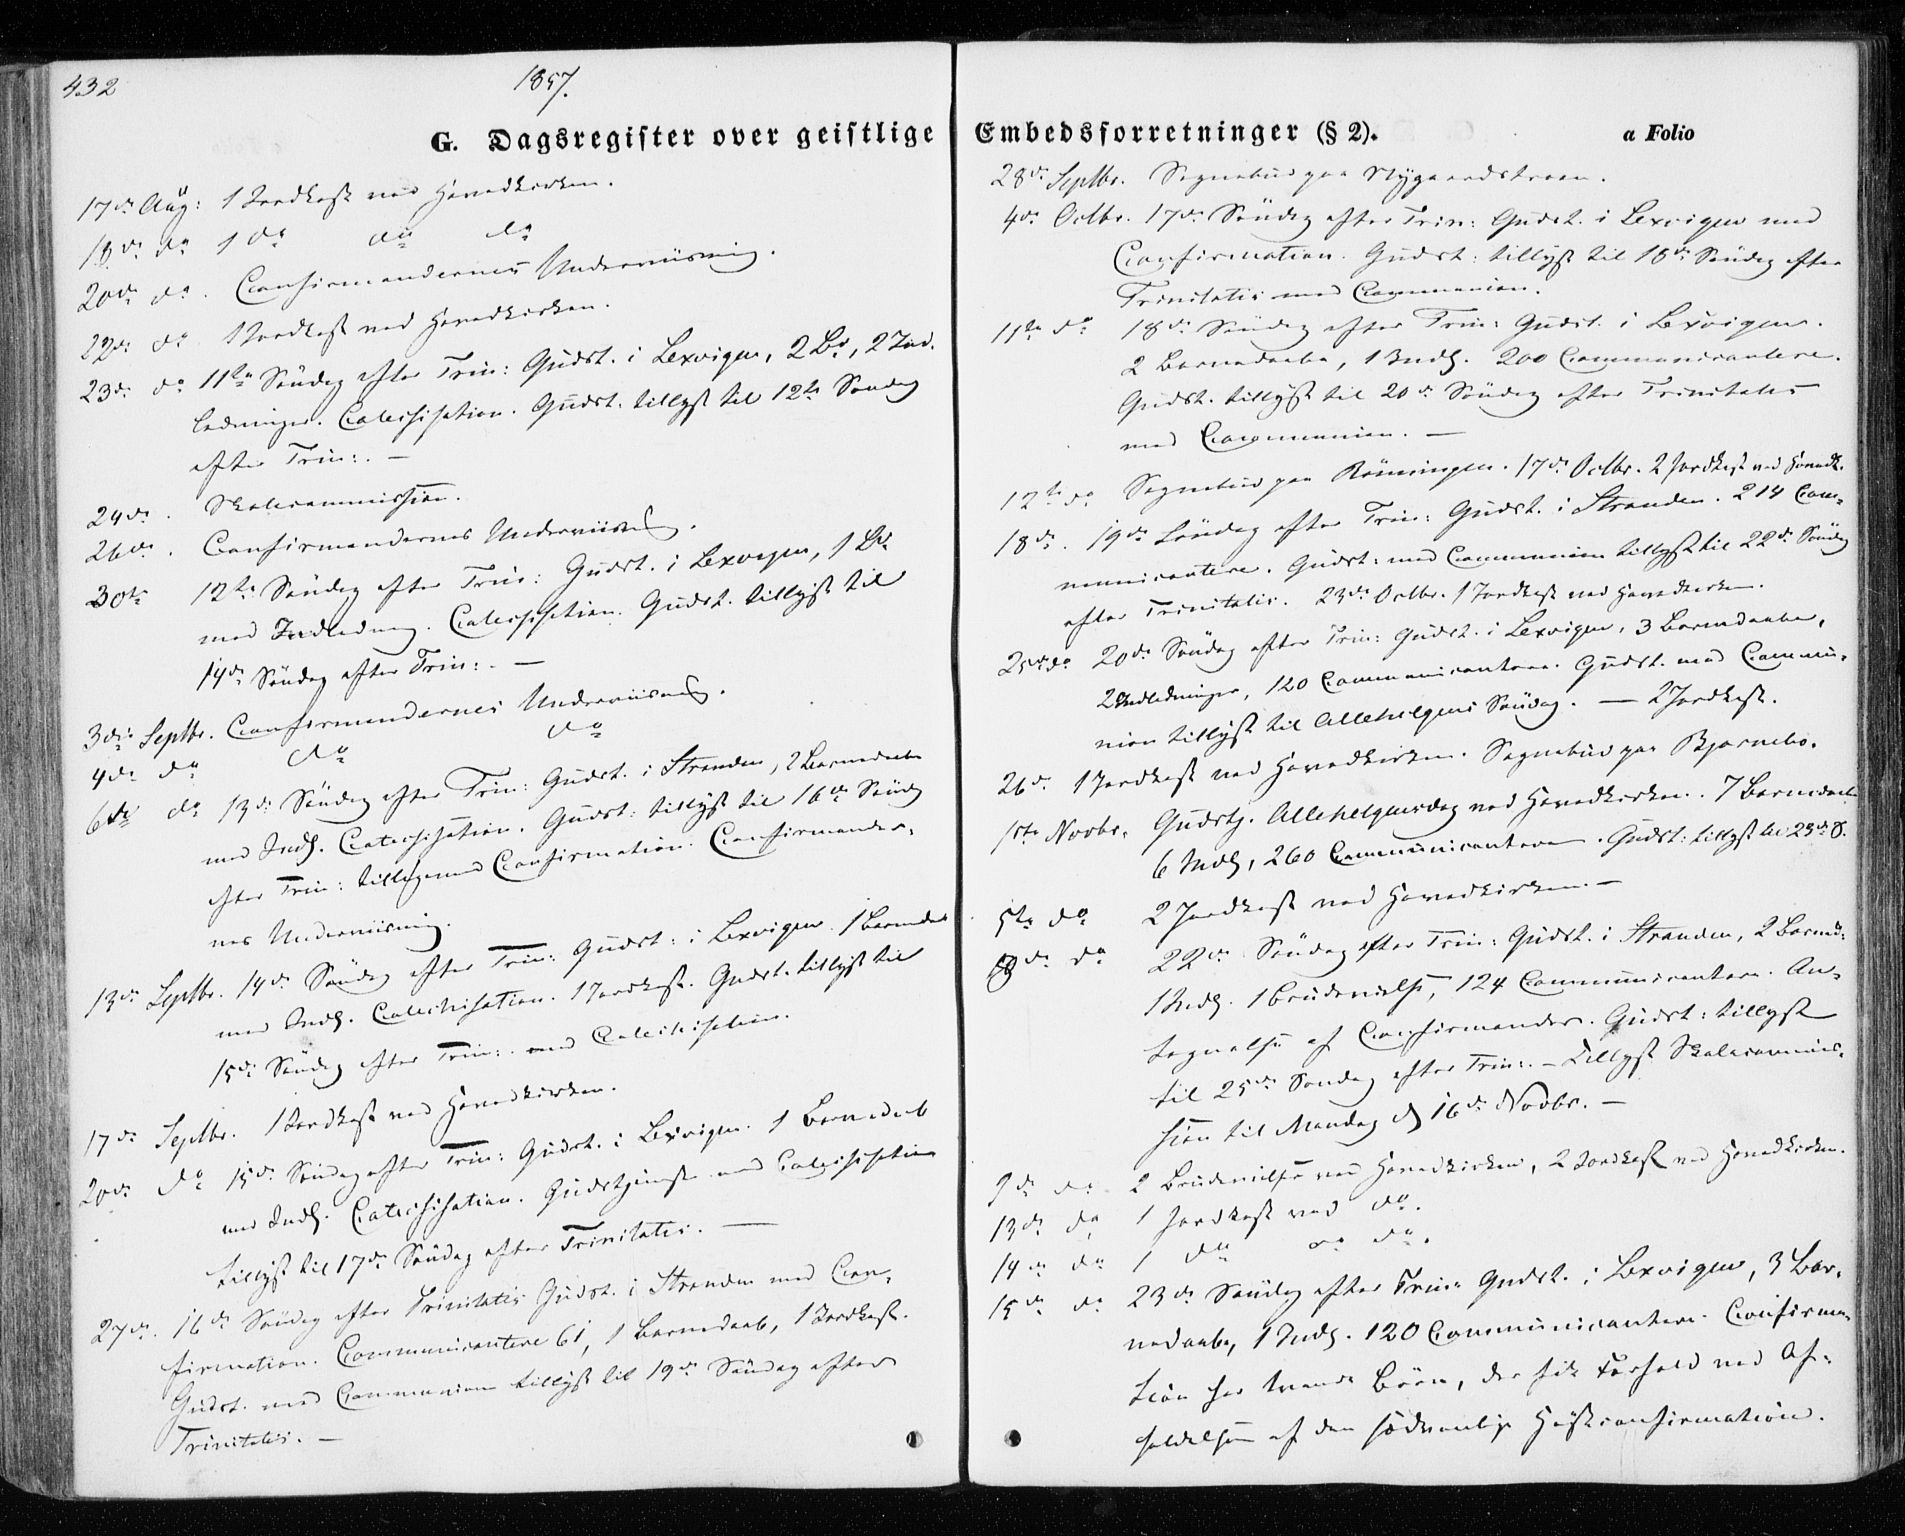 432
1857.
G. Dagsregister over geistlige
17de Aug: 1 Jordkast ved Hovedkirken.
18de do 1 do do do
20de do. Confirmandernes Underviisning.
22de do 1 Jordkast ved Hovedkirken.
23de do 11te Søndag efter Trin: Gudst. i Lexvigen, 2 Bd, 2 Ind-
ledninger. Catechisation. Gudst. tillyst til 12te Søndag
efter Trin:. —
24de. Skolecommission.
26de. Confirmandernes Underviisng.
30te 12te Søndag efter Trin: Gudst. i Lexvigen, 1 Bd.
med Indledning. Catechisation. Gudst. tillyst til
14de Søndag efter Trin:. —
3die Septbr. Confirmandernes Underviisng.
4de do do do
6te do 13de Søndag efter Trin: Gudst. i Stranden, 2 Barnedaab
med Indl. Catechisation. Gudst: tillyst til 16de Søndag
efter Trin: tilligemed Confirmation. Confirmander-
nes Underviisning.
13de Septbr. 14de Søndag efter Trin: Gudst: i Lexvigen. 1 Barnedaab
med Indl. Catechisation. 1 Jordkast. Gudst. tillyst til
15de Søndag efter Trin:. med Catechisation.
17de Septbr. 1 Jordkast ved Hovedkirken.
20de do 15de Søndag efter Trin: Gudst. i Lexvigen. 1 Barnedaab
med Indl. Catechisation. Gudstjeneste med Catechisation
tillyst til 17de Søndag efter Trinitatis. —
27de. 16de Søndag efter Trinitatis Gudst. i Stranden med Con-
firmation. Communicantere 61, 1 Barnedaab, 1 Jordkast.
Gudst. med Communion tillyst til 19de Søndag efter
Trinitatis. —
Embedsforretninger (§ 2).
a Folio
28de Septbr. Sognebud paa Nygaardstrøen.
4de Octbr. 17de Søndag efter Trin: Gudst. i Lexvigen med
Confirmation. Gudst: tillyst til 18de Søndag efter
Trinitatis med Communion.
11te do 18de Søndag efter Trin: Gudst. i Lexvigen.
2 Barnedaabe, 1 Indl. 200 Communicantere.
Gudst. tillyst til 20de Søndag efter Trinitatis
med Communion. —
12te do Sognebud paa Rønningen. 17de Octbr. 2 Jordkast ved Hovedk.
18de. 19de Søndag efter Trin: Gudst. i Stranden. 214 Com-
municantere. Gudst: med Communion tillyst til 22de Søndag
efter Trinitatis. 23de Octbr. 1 Jordkast ved Hovedkirken.
25de do 20de Søndag efter Trin: Gudst. i Lexvigen, 3 Barnedaabe,
2 Indledninger, 120 Communicantere. Gudst. med Commu-
nion tillyst til Allehelgens Søndag. — 2 Jordkast.
26de. 1 Jordkast ved Hovedkirken. Sognebud paa Bjørnebo.
1ste Novbr. Gudstj. Allehelgensdag ved Hovedkirken. 7 Barnedaab
6 Indl, 260 Communicantere. Gudst: tillyst til 23de S.
5te do 2 Jordkast ved Hovedkirken. —
8de do 22de Søndag efter Trin: Gudst. i Stranden, 2 Barned:
1 Indl. 1 Brudevielse, 124 Communicantere. An-
tegnelse af Confirmander. Gudst: tillyst
til 25de Søndag efter Trin:. — Tillyst Skolecommis-
sion til Mandag d. 16de Novbr. —
9de do 2 Brudevielse ved Hovedkirken, 2 Jordkast ved Hovedkirken.
13de do 1 Jordkast ved do.
14de do 1 do do do.
15de do 23de Søndag efter Trin: Gudst. i Lexvigen, 3 Bar-
nedaabe, 1 Indl. 120 Communicantere. Confirma-
tion for tvende Børn, der fik Forfald ved Af-
holdelsen af den sædvanlige Høstconfirmation.